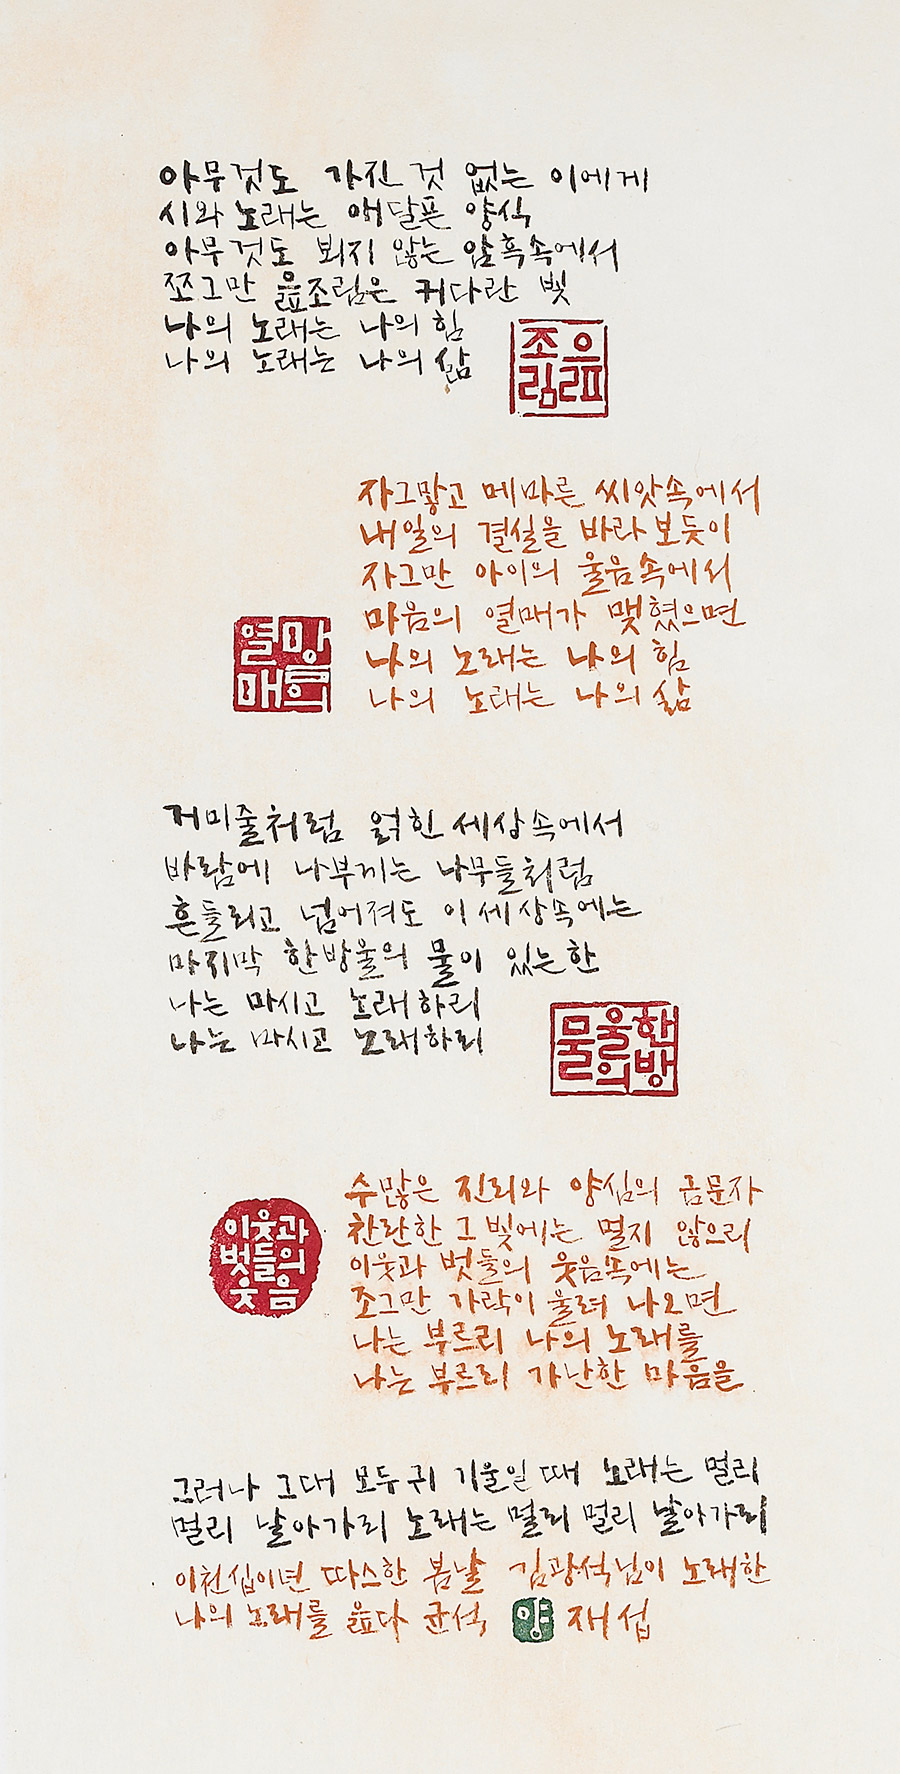 아무것도 가진 것 없는 이에게
시와 노래는 애달픈 양식
아무것도 뵈지 않는 암흑속에서
쪼그만 읊조림은 커다란 빛
나의 노래는 나의 힘
나의 노래는 나의 삶
읊조림
자그맣고 메마른 씨앗속에서
내일의 결실을 바라 보듯이
자그만 아이의 울음속에서
마음의 열매가 맺혔으면
나의 노래는 나의 힘
나의 노래는 나의 삶
마음의 열매
거미줄처럼 얽힌 세상속에서
바람에 나부끼는 나무들처럼
흔들리고 넘어져도 이 세상속에는
마지막 한방울의 물이 있는한
나는 마시고 노래하리
나는 마시고 노래하리
한방울의 물
수많은 진리와 양심의 금문자
찬란한 그 빛에는 멀지 않으리
이웃과 벗들의 웃음속에는
조그만 가락이 울려 나오면
나는 부르리 나의 노래를
나는 부르리 가난한 마음을
이웃과
벗들의
웃음
그러나 그대 모두 귀 기울일 때 노래는 멀리
멀리 날아가리 노래는 멀리 멀리 날아가리
이천십이년 따스한 봄날 김광석님이 노래한
나의 노래를 읊다 균석 양 재섭